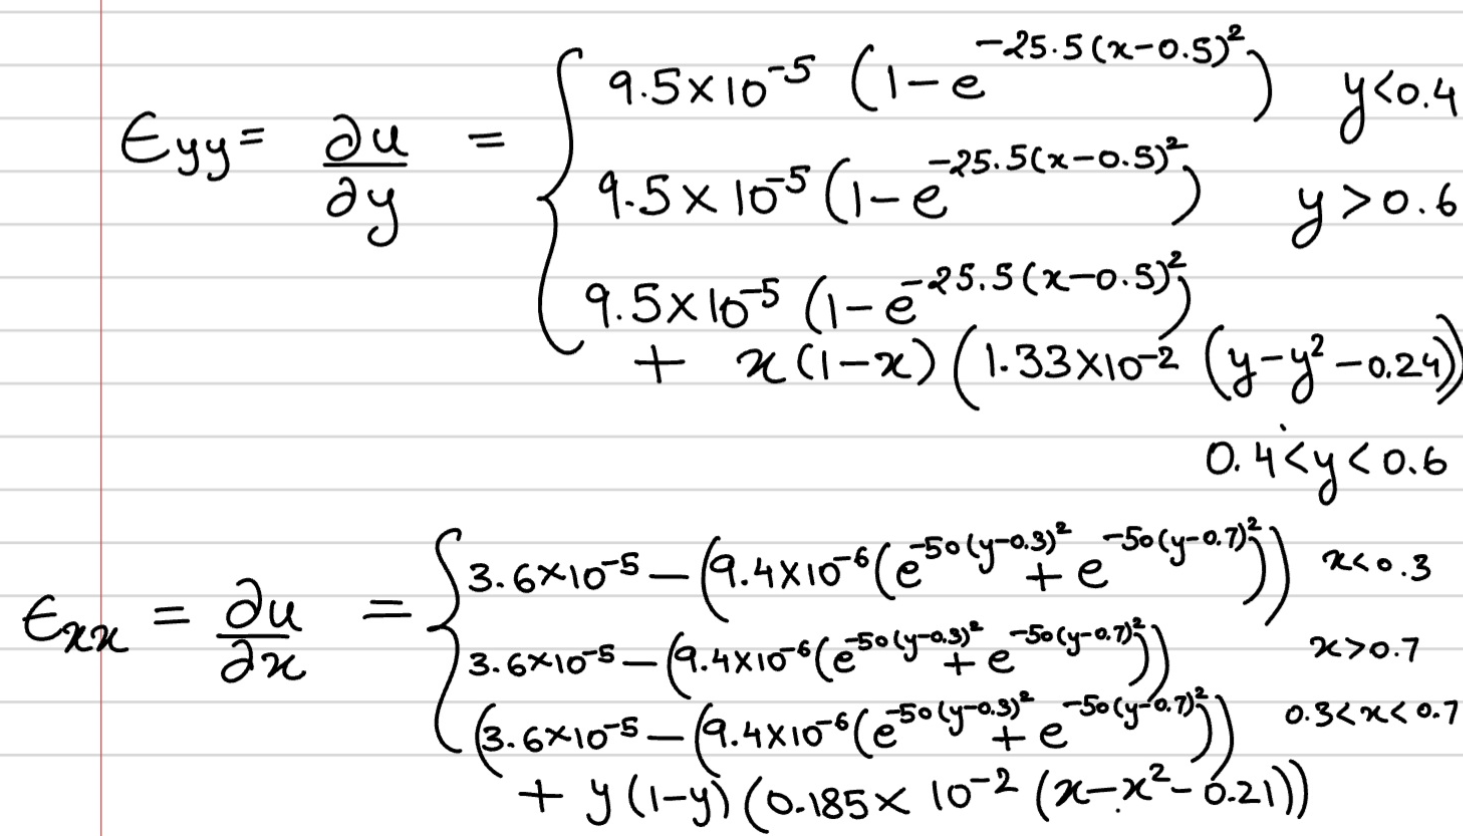 ϵyy = ∂u/∂y = { 9.5×10^-5 (1-e^-25.5(x-0.5)^2) y<0.4
9.5×10^-5 (1-e^-25.5(x-0.5)^2) y>0.6
9.5×10^-5 (1-e^-25.5(x-0.5)^2)
+ x(1-x) (1.33×10^-2 (y-y^2-0.24))
0.4<y<0.6
ϵxx = ∂u/∂x = { 3.6×10^-5 - (9.4×10^-6 (e^-50(y-0.3)^2 + e^-50(y-0.7)^2)) x<0.3
3.6×10^-5 - (9.4×10^-6 (e^-50(y-0.3)^2 + e^-50(y-0.7)^2)) x>0.7
(3.6×10^-5 - (9.4×10^-6 (e^-50(y-0.3)^2 + e^-50(y-0.7)^2)) 0.3<x<0.7
+ y(1-y) (0.185×10^-2 (x-x^2-0.21))